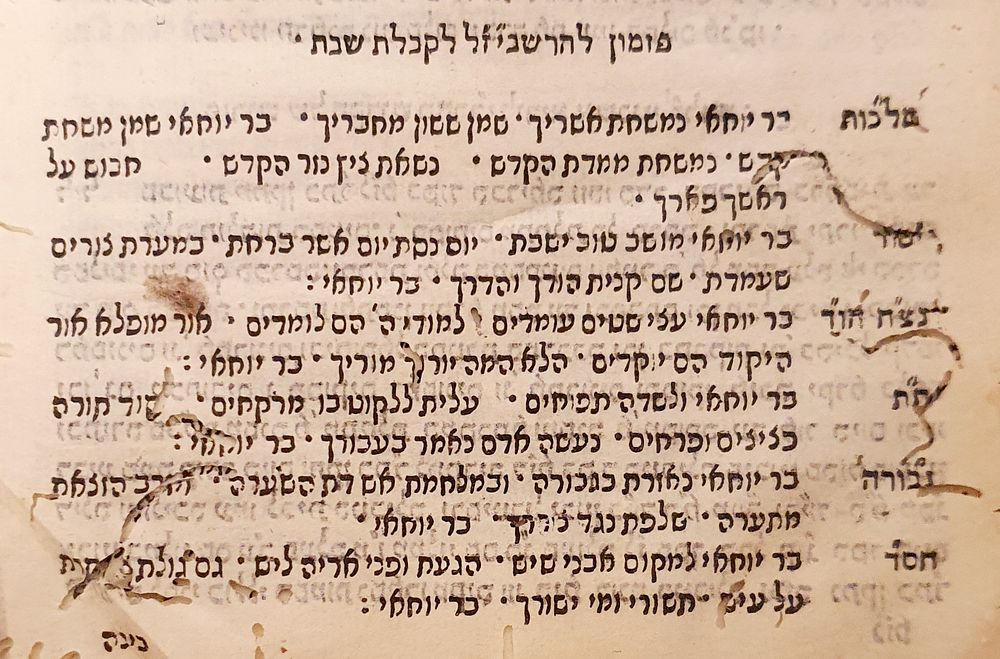 פזמון להרשב״י ז״ל לקבלת שבת ·
מל״כות בר יוחאי נמשחת אשריך · שמן ששון מחבריך · בר יוחאי שמן משחת
קדש · נמשחת ממדת הקדש · נשאת ציץ נזר הקדש · חבוש על
ראשך פארך ·
יסוד בר יוחאי מושב טוב ישבת · יום נסת יום אשר ברחת · במערת צורים
שעמדת · שם קנית הודך והדרך · בר יוחאי :
נצ״ח הו״ד בר יוחאי עצי שטים עומדים למודי ה' הם לומדים · אור מופלא אור
היקוד הם יוקדים · הלא המה יורוך מוריך · בר יוחאי :
ת״ת בר יוחאי ולשדה תפוחים · עלית ללקוט בו מרקחים · סוד תורה
בציצים ופרחים · נעשה אדם נאמר בעבורך · בר יוחאי :
גבורה בר יוחאי נאזרת בגבורה · ובמלחמת אש דת השערה · וחרב הוצאת
מתערה · שלפת נגד צורריך · בר יוחאי ·
חס״ד בר יוחאי למקום אבני שיש · הגעת ופני אריה ליש · גם גולת
על עיש · תשורי ומי ישורך · בר יוחאי :
בינה